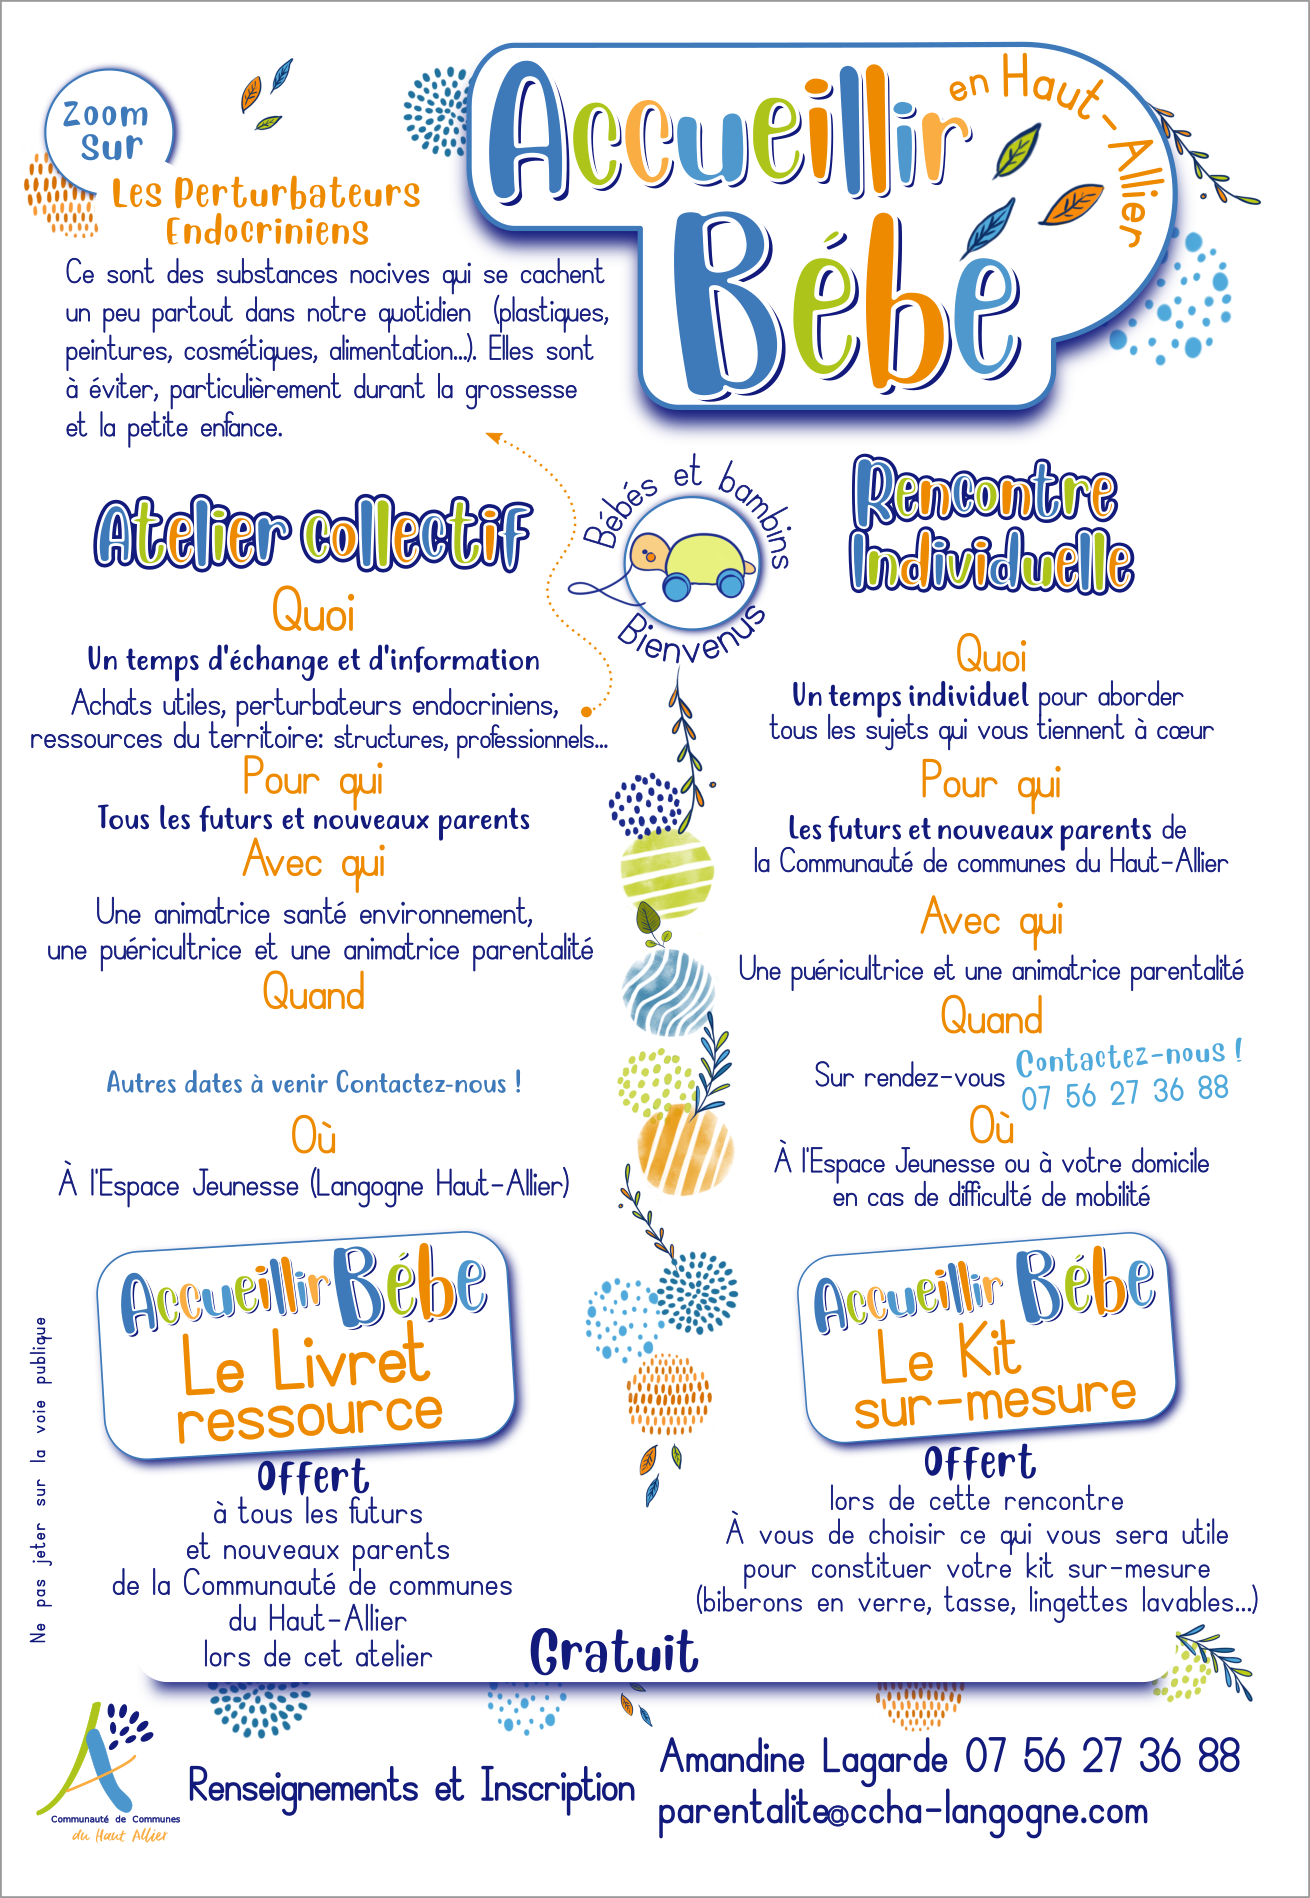 Zoom
Sur
Les Perturbateurs
Endocriniens
Ce sont des substances nocives qui se cachent
un peu partout dans notre quotidien (plastiques,
peintures, cosmétiques, alimentation...). Elles sont
à éviter, particulièrement durant la grossesse
et la petite enfance.
Accueillir
en Haut-Allier
Bébé
Bébés et bambins
Bienvenus
Atelier collectif
Quoi
Un temps d'échange et d'information
Achats utiles, perturbateurs endocriniens,
ressources du territoire: structures, professionnels...
Pour qui
Tous les futurs et nouveaux parents
Avec qui
Une animatrice santé environnement,
une puéricultrice et une animatrice parentalité
Quand
Autres dates à venir Contactez-nous !
Où
À l'Espace Jeunesse (Langogne Haut-Allier)
Accueillir Bébé
Le Livret
ressource
Offert
à tous les futurs
et nouveaux parents
de la Communauté de communes
du Haut-Allier
lors de cet atelier
Rencontre
Individuelle
Quoi
Un temps individuel pour aborder
tous les sujets qui vous tiennent à cœur
Pour qui
Les futurs et nouveaux parents de
la Communauté de communes du Haut-Allier
Avec qui
Une puéricultrice et une animatrice parentalité
Quand
Sur rendez-vous
Contactez-nous !
07 56 27 36 88
Où
À l'Espace Jeunesse ou à votre domicile
en cas de difficulté de mobilité
Accueillir Bébé
Le Kit
sur-mesure
Offert
lors de cette rencontre
À vous de choisir ce qui vous sera utile
pour constituer votre kit sur-mesure
(biberons en verre, tasse, lingettes lavables...)
Gratuit
Ne pas jeter sur la voie publique
Communauté de Communes
du Haut Allier
Renseignements et Inscription
Amandine Lagarde 07 56 27 36 88
parentalite@ccha-langogne.com